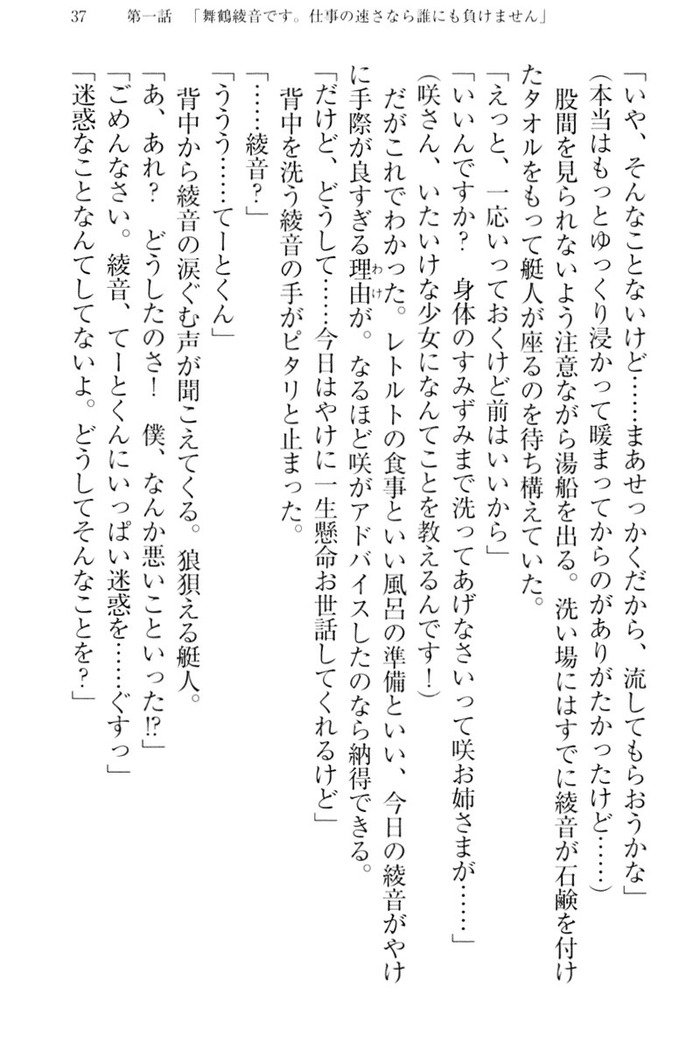 37　第一話　「舞鶴綾音です。仕事の速さなら誰にも負けません」
「いや、そんなことないけど……まあせっかくだから、流してもらおうかな」
（本当はもっとゆっくり浸かって暖まってからのがありがたかったけど……）
　股間を見られないよう注意ながら湯船を出る。洗い場にはすでに綾音が石鹸を付け
たタオルをもって艇人が座るのを待ち構えていた。
「えっと、一応いっておくけど前はいいから」
「いいんですか？　身体のすみずみまで洗ってあげなさいって咲お姉さまが……」
（咲さん、いたいけな少女になんてことを教えるんです！）
　だがこれでわかった。レトルトの食事といい風呂の準備といい、今日の綾音がやけ
に手際が良すぎる理由わけが。なるほど咲がアドバイスしたのなら納得できる。
「だけど、どうして……今日はやけに一生懸命お世話してくれるけど」
　背中を洗う綾音の手がピタリと止まった。
「……綾音？」
「ううう……てーとくん」
　背中から綾音の涙ぐむ声が聞こえてくる。狼狽える艇人。
「あ、あれ？　どうしたのさ！　僕、なんか悪いこといった!?」
「ごめんなさい。綾音、てーとくんにいっぱい迷惑を……ぐすっ」
「迷惑なことなんてしてないよ。どうしてそんなことを？」